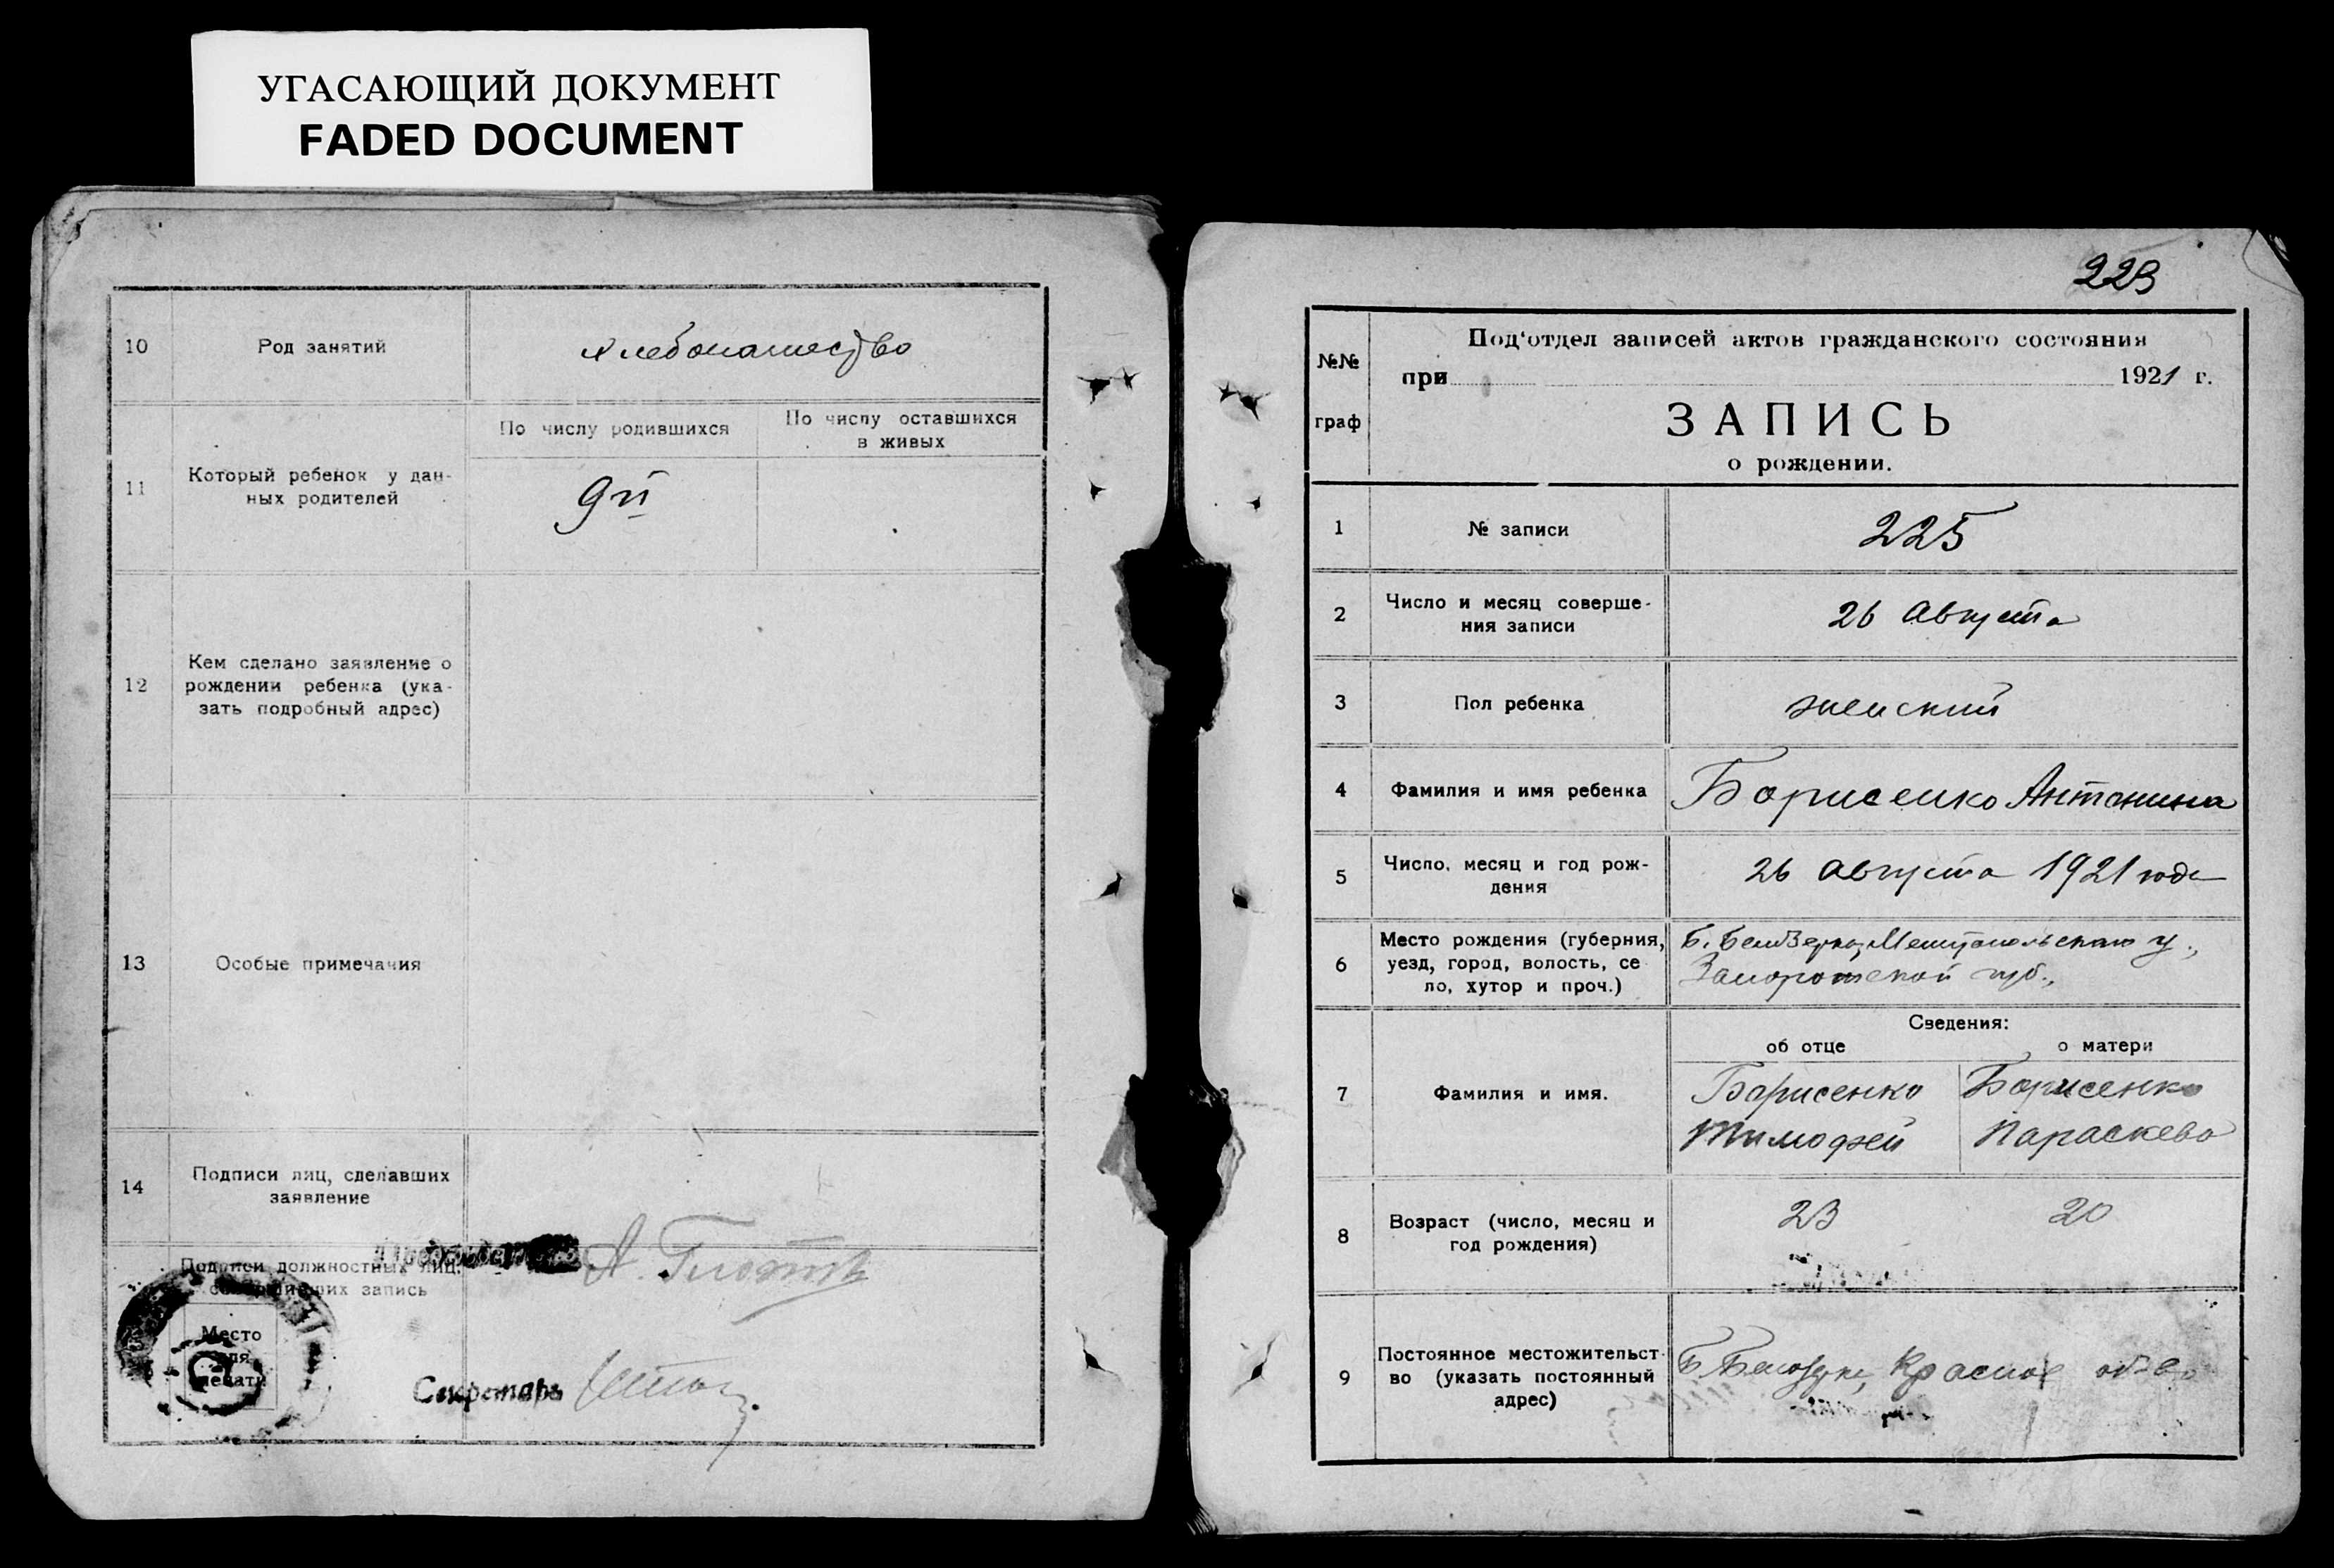 УГАСАЮЩИЙ ДОКУМЕНТ
FADED DOCUMENT
10
Род занятий
хлебопашество
11
Который ребенок у дан-
ных родителей
По числу родившихся
По числу оставшихся
в живых
9й
12
Кем сделано заявление о
рождении ребенка (ука-
зать подробный адрес)
13
Особые примечания
14
Подписи лиц, сделавших
заявление
Подписи должностных лиц,
совершивших запись
А.
Место
для
печати
Секретарь
223
№№
граф
Под'отдел записей актов гражданского состояния
при 1921 г.
ЗАПИСЬ
о рождении.
1
№ записи
225
2
Число и месяц соверше-
ния записи
26 Августа
3
Пол ребенка
женский
4
Фамилия и имя ребенка
Борисенко Антонина
5
Число, месяц и год рож-
дения
26 августа 1921 года
6
Место рождения (губерния,
уезд, город, волость, се
ло, хутор и проч.)
Б. Мелитопольского у.,
Запорожской губ.,
7
Фамилия и имя.
Сведения:
об отце
о матери
Борисенко
Тимофей
Борисенко
Параскева
8
Возраст (число, месяц и
год рождения)
23
20
9
Постоянное местожительст-
во (указать постоянный
адрес)
Б. Красное об-во